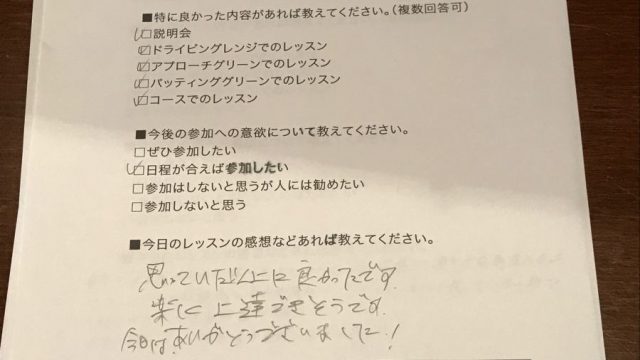 ■特に良かった内容があれば教えてください。(複数回答可)
☑説明会
☑ドライビングレンジでのレッスン
☑アプローチグリーンでのレッスン
☑パッティンググリーンでのレッスン
☑コースでのレッスン
■今後の参加への意欲について教えてください。
□ぜひ参加したい
☑日程が合えば参加したい
□参加はしないと思うが人には勧めたい
□参加しないと思う
■今日のレッスンの感想などあれば教えてください。
思っていた以上に良かったです
楽に上達できそうです
今日はありがとうございました!